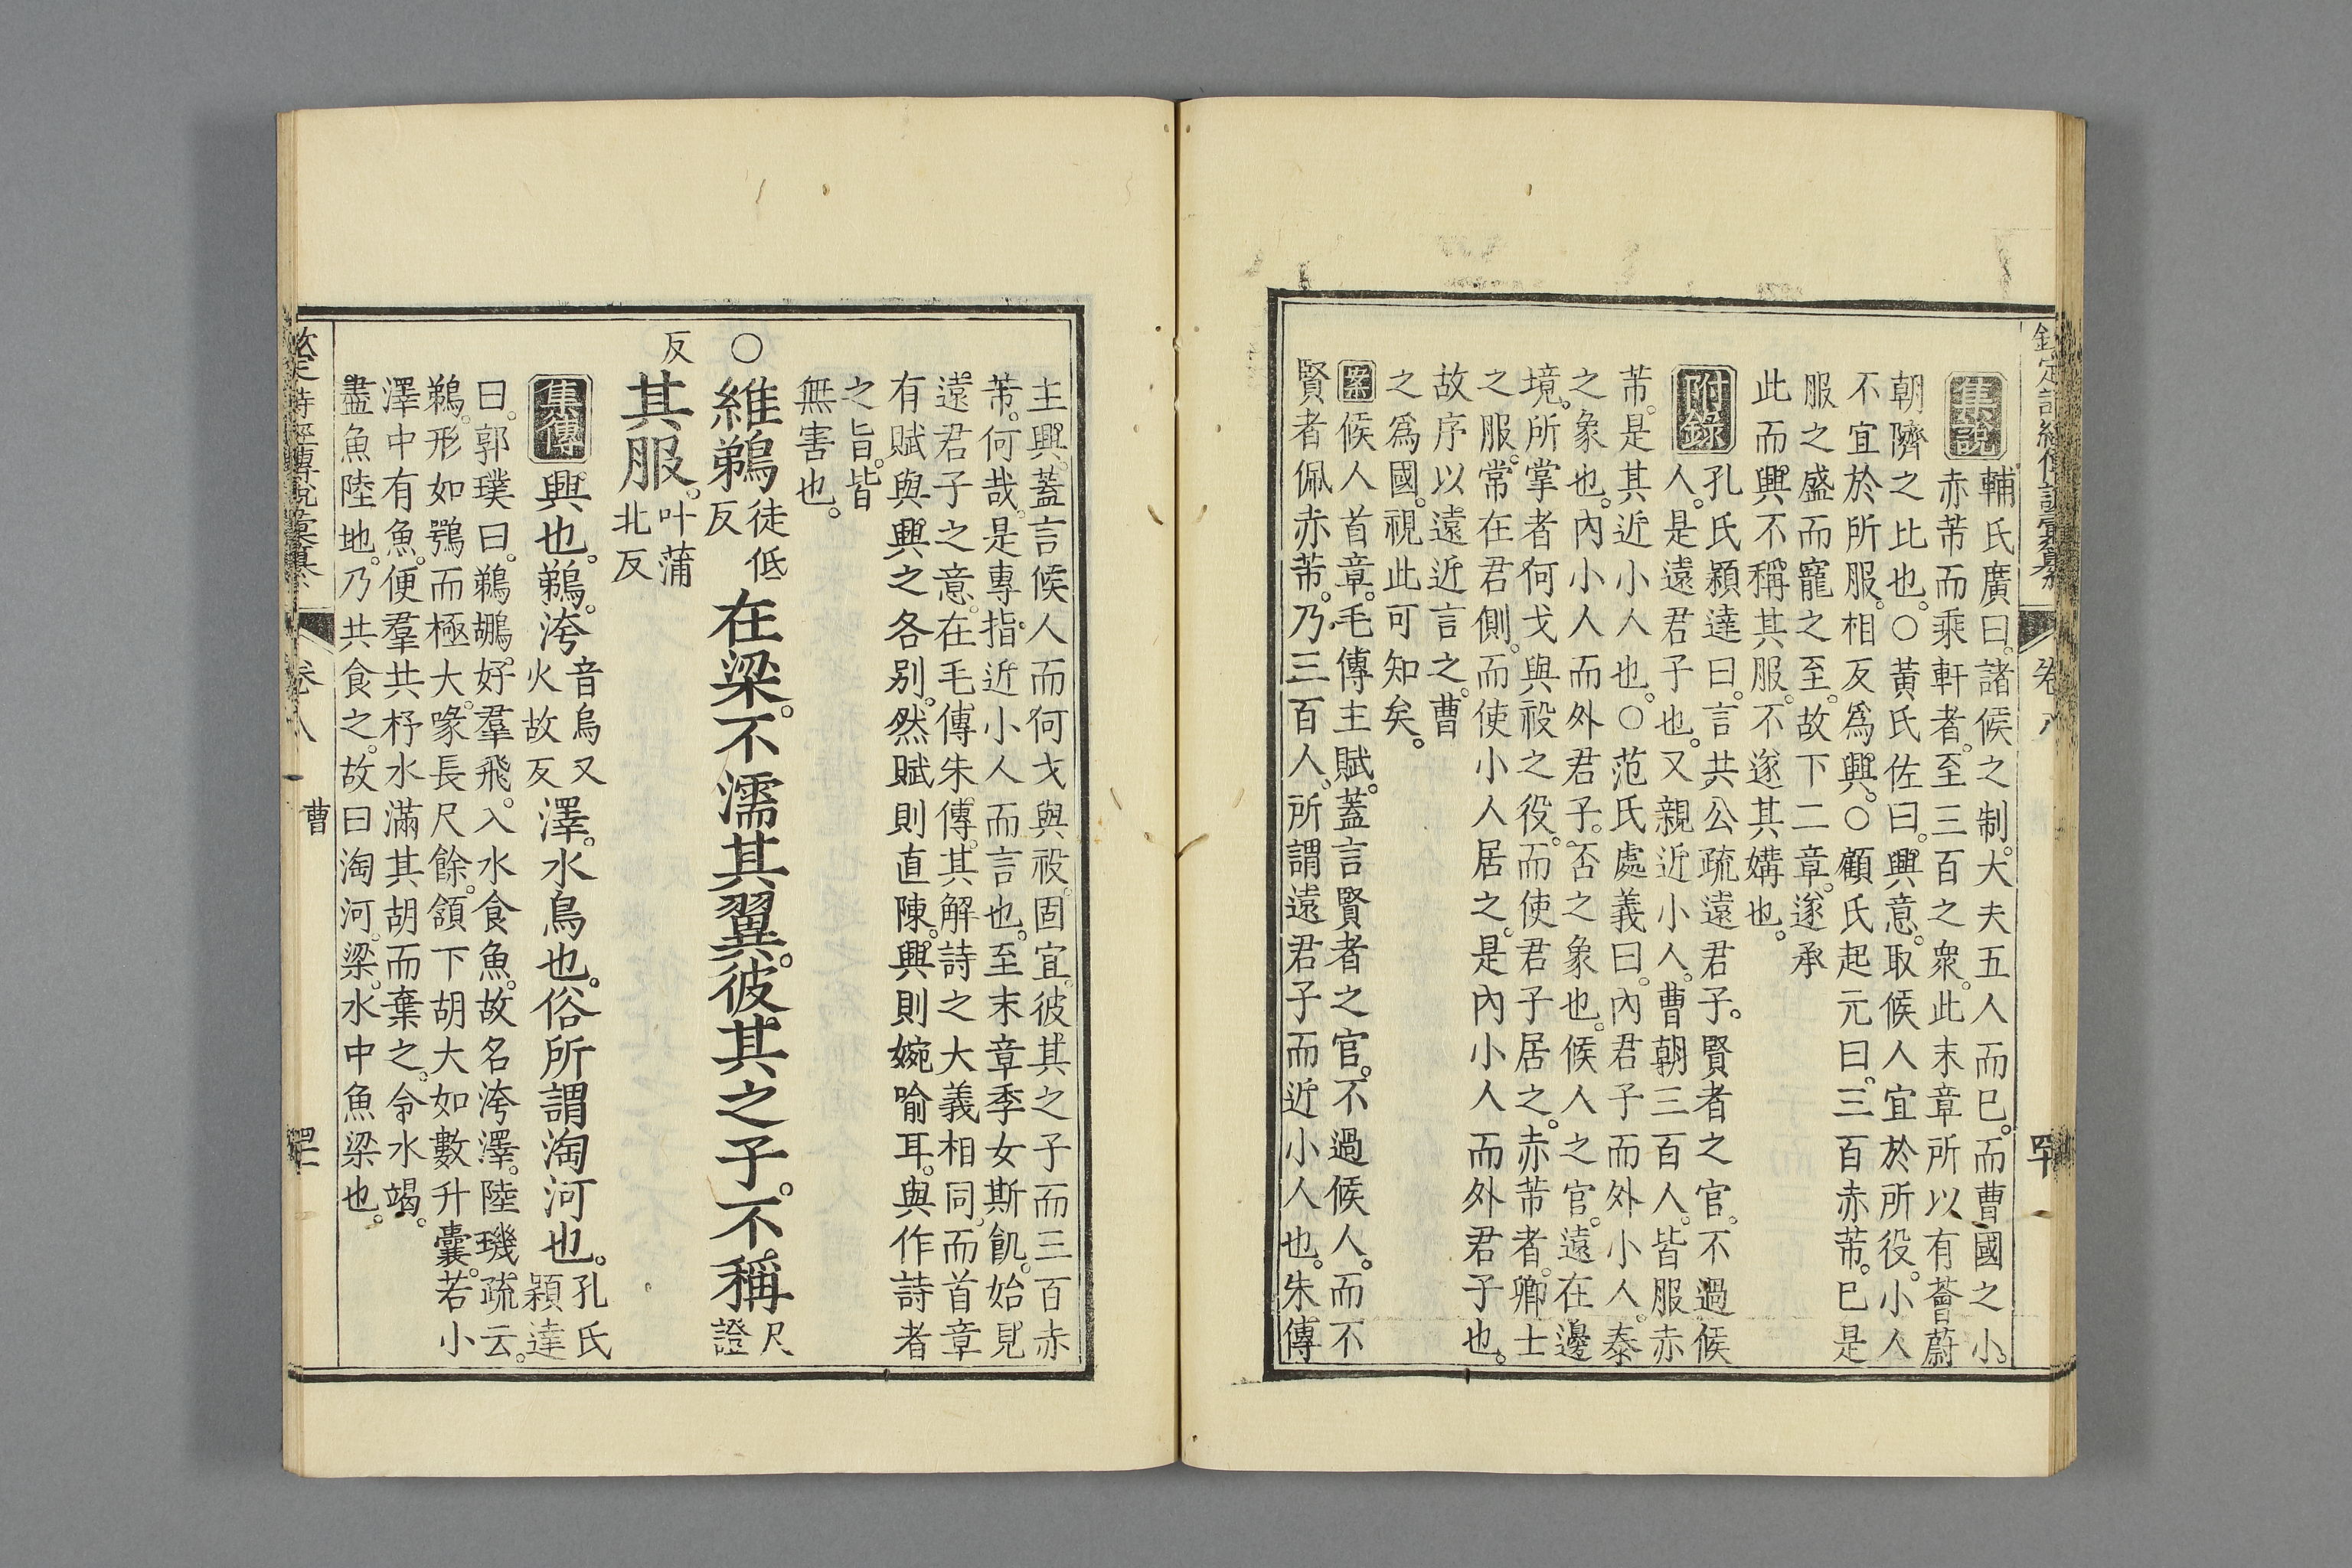 欽定詩經傳說彙纂 卷八
集說 輔氏廣曰。諸侯之制。大夫五人而已。而曹國之小。
赤芾而乘軒者。至三百之衆。此末章所以有薈蔚
朝隮之比也。○黃氏佐曰。興意。取候人宜於所役。小人
不宜於所服。相反爲興。○顧氏起元曰。三百赤芾。已是
服之盛而寵之至。故下二章。遂承
此而興不稱其服。不遂其媾也。
附錄 孔氏穎達曰。言共公疏遠君子。賢者之官。不過候
人。是遠君子也。又親近小人。曹朝三百人。皆服赤
芾。是其近小人也。○范氏處義曰。內君子而外小人。泰
之象也。內小人而外君子。否之象也。候人之官。遠在邊
境。所掌者何戈與祋之役。而使君子居之。赤芾者。卿士
之服。常在君側。而使小人居之。是內小人而外君子也。
故序以遠近言之。曹
之爲國。視此可知矣。
案 候人首章。毛傳主賦。蓋言賢者之官。不過候人。而不
賢者佩赤芾。乃三百人。所謂遠君子而近小人也。朱傳
主興。蓋言候人而何戈與祋。固宜。彼其之子而三百赤
芾。何哉。是專指近小人而言也。至末章季女斯飢。始見
遠君子之意。在毛傳朱傳。其解詩之大義相同。而首章
有賦與興之各別。然賦則直陳。興則婉喻耳。與作詩者
之旨。皆
無害也。
○維鵜徒低反在梁。不濡其翼。彼其之子。不稱尺證
反其服。叶蒲北反
集傳 興也。鵜。洿音烏又火故反澤。水鳥也。俗所謂淘河也。孔氏穎達
曰。郭璞曰。鵜鶘。好羣飛。入水食魚。故名洿澤。陸璣疏云。
鵜。形如鶚而極大。喙長尺餘。頷下胡大如數升囊。若小
澤中有魚。便羣共杼水滿其胡而棄之。令水竭。
盡魚陸地。乃共食之。故曰淘河。梁。水中魚梁也。
卷八 曹